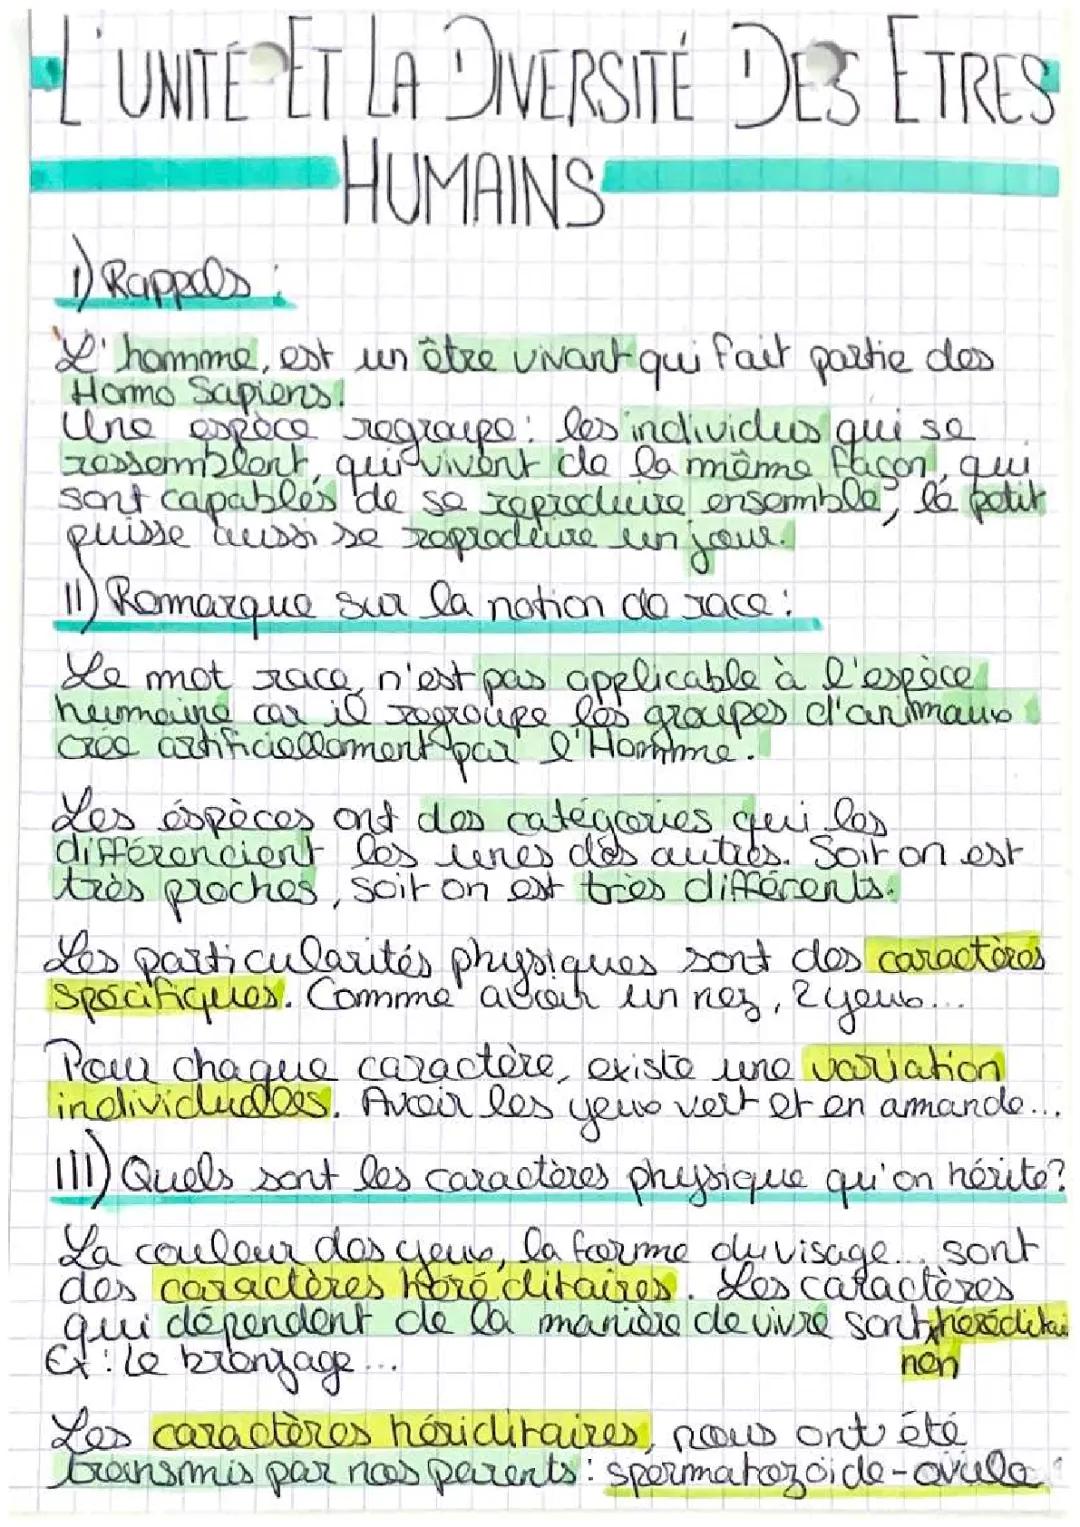 L'UNITÉ ET LA DIVERSITÉ DES ETRES
HUMAINS
I) Rappels :
L'homme, est un être vivant qui fait partie des
Homo Sapiens.
Une espèce regroupe: les individus qui se
ressemblent, qui vivent de la même façon, qui
sont capables de se reproduire ensemble, le petit
puisse aussi se reproduire un jour.
II) Remarque sur la notion de race :
Le mot race, n'est pas applicable à l'espèce
humaine car il regroupe les groupes d'animaux
crée artificiellement par l'Homme.
Les éspèces ont des catégories qui les
différencient les unes des autres. Soit on est
très proches, soit on est très différents.
Les particularités physiques sont des caractères
spécifiques. Comme avoir un nez, 2 yeux...
Pour chaque caractère, existe une variation
individuelles. Avoir les yeux vert et en amande...
III) Quels sont les caractères physique qu'on hérite?
La couleur des yeux, la forme du visage... sont
des caractères héréditaires. Les caractères
qui dépendent de la manière de vivre sont héréditai
Ex : Le bronzage... non
Les caractères hériditaires, nous ont été
transmis par nos parents : spermatozoide-ovule